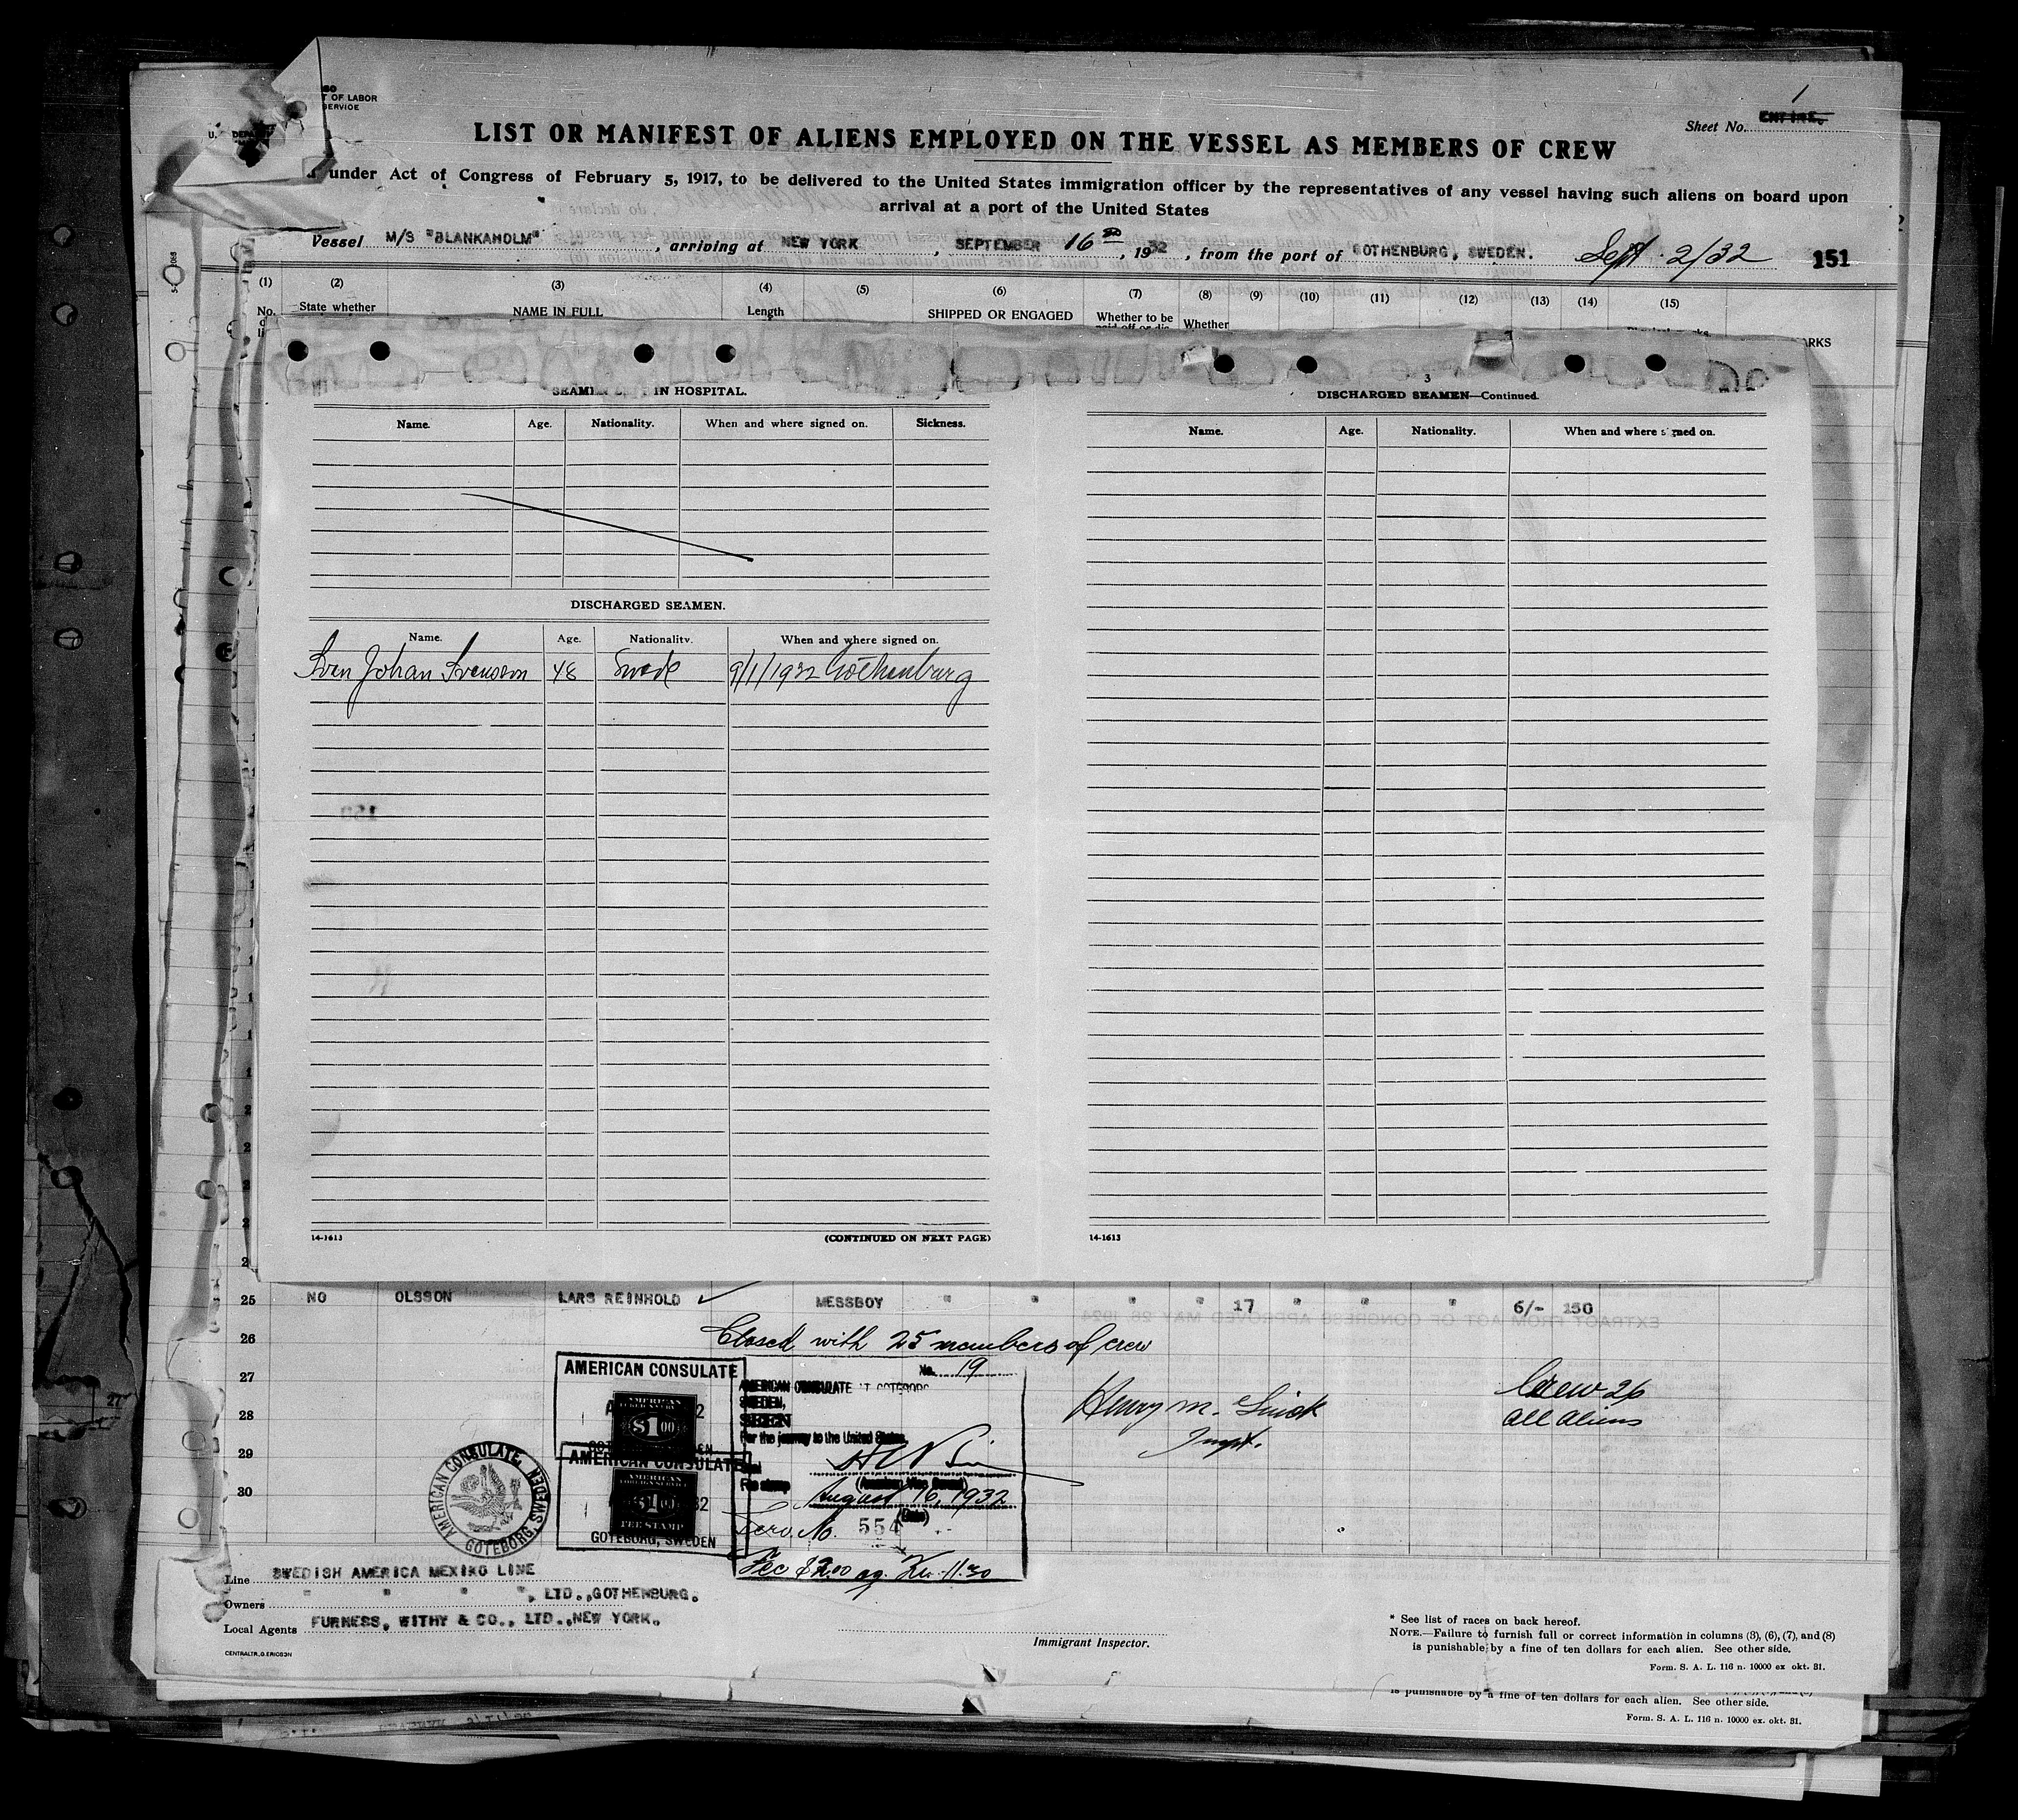 T OF LABOR
SERVICE
U. S. DEPAR
1
Sheet No. ENTIRE.
LIST OR MANIFEST OF ALIENS EMPLOYED ON THE VESSEL AS MEMBERS OF CREW
under Act of Congress of February 5, 1917, to be delivered to the United States immigration officer by the representatives of any vessel having such aliens on board upon
arrival at a port of the United States
Vessel M/S "BLANKAHOLM", arriving at NEW YORK, SEPTEMBER 16, 1932, from the port of GOTHENBURG, SWEDEN. Sept. 2/32 151
(1) (2) (3) (4) (5) (6) (7) (8) (9) (10) (11) (12) (13) (14) (15)
No. State whether NAME IN FULL Length SHIPPED OR ENGAGED Whether to be Whether
RKS
IN HOSPITAL.
Name. Age. Nationality. When and where signed on. Sickness.
DISCHARGED SEAMEN.
Name. Age. Nationality. When and where signed on.
Sven Johan Svenson 48 Swede 9/1/1932 Gothenburg
14-1613 (CONTINUED ON NEXT PAGE)
3
DISCHARGED SEAMEN—Continued.
Name. Age. Nationality. When and where signed on.
14-1613
25 NO OLSSON LARS REINHOLD MESSBOY " " " " 17 " " " 6/- 150
26 Closed with 25 members of crew
27
28
29
30
AMERICAN CONSULATE
$1.00
AMERICAN CONSULATE
$1.00
FEE STAMP
GOTEBORG, SWEDEN
AMERICAN CONSULATE, GOTEBORG, SWEDEN
No. 19
AMERICAN CONSULATE AT GOTEBORG
SWEDEN,
For the journey to the United States.
(American Vice Consul)
August 16, 1932
(Date)
Serv. No. 554
Fee $2.00 eq. Kr. 11.30
Henry M.
Inspt.
Crew 26
all aliens
Line SWEDISH AMERICA MEXIKO LINE
Owners " " " ", LTD., GOTHENBURG.
Local Agents FURNESS, WITHY & CO., LTD., NEW YORK.
CENTRALTR, G. ERICSSN
Immigrant Inspector.
* See list of races on back hereof.
NOTE.—Failure to furnish full or correct information in columns (3), (6), (7), and (8)
is punishable by a fine of ten dollars for each alien. See other side.
Form. S. A. L. 116 n. 10000 ex okt. 31.
is punishable by a fine of ten dollars for each alien. See other side.
Form. S. A. L. 116 n. 10000 ex. okt. 31.